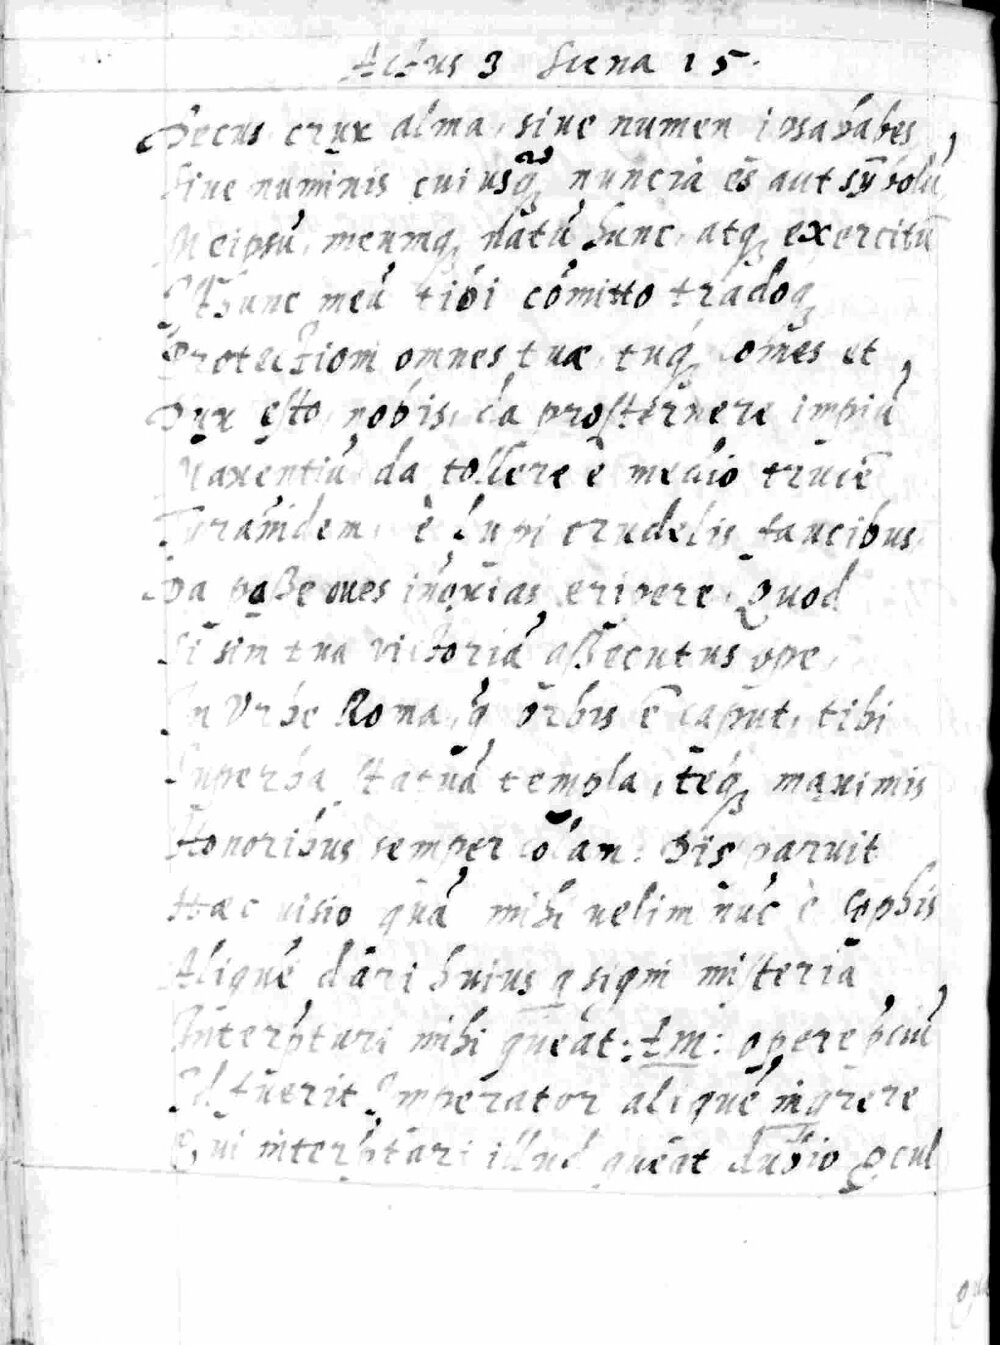 Actus 3 Scena 15.
Decus crux alma, siue numen ipsa habes
Siue numinis cuiusqꝫ nuncia es aut sÿbolũ,
Meipsũ, meumqꝫ natũ hunc, atqꝫ exercitũ
Hunc meũ tibi cõmitto tradoqꝫ
Protectioni omnes tuæ, tuqꝫ comes et
Dux esto nobis, da prosternere impiũ
Maxentiũ da tollere è medio trucẽ
Tyrãnidem, è lupi crudelis faucibus
Da passe oues innoxias eripere. Quod
Si sim tua victoriã assecutus ope,
In Urbe Roma, q̃ orbis ẽ caput, tibi
Superba statuã templa, teqꝫ maximis
Honoribus semper colam: Dis paruit
Hæc uisio quã mihi uelim nũc è sophis
Aliquẽ dari huius q signi misteria
Interp̃tari mihi queat: AM: opere p̃ciũ
Id fuerit Imperator aliquẽ inq̃rere
Qui interp̃tari illud queat dubio ꝓcul